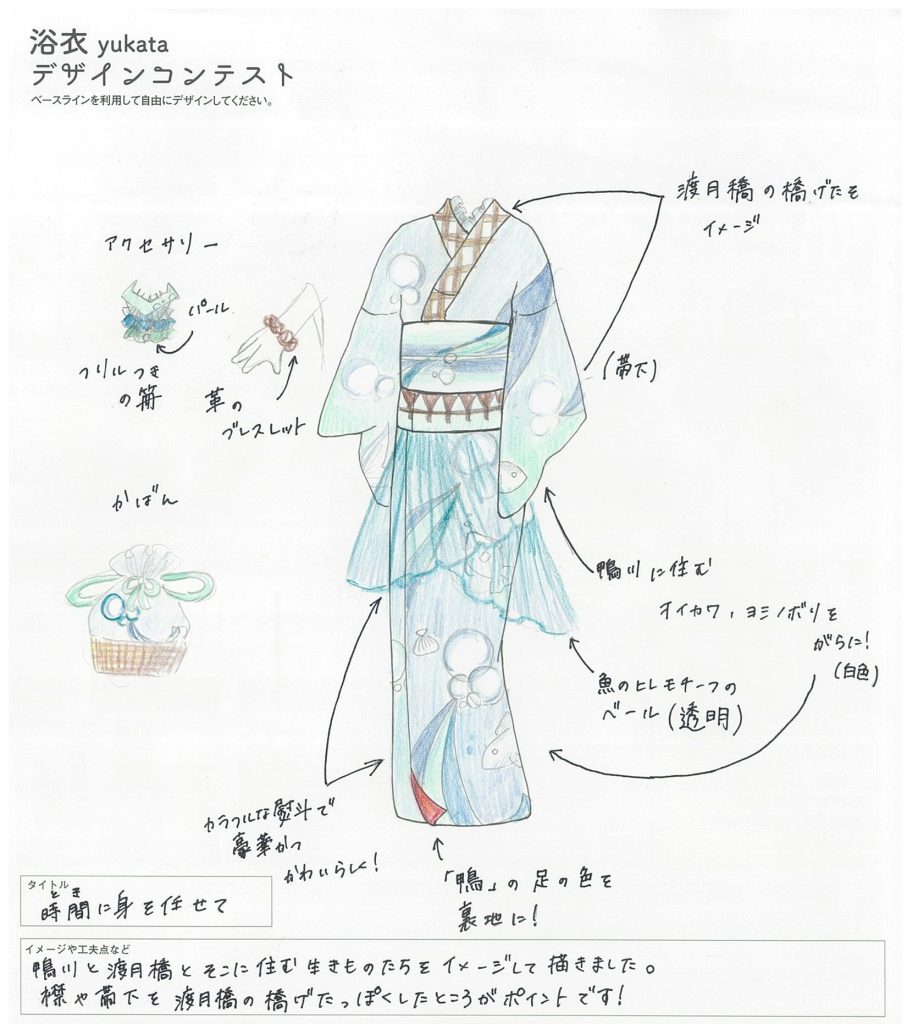 浴衣 yukata
デザインコンテスト
ベースラインを利用して自由にデザインしてください。
渡月橋の橋げたを
イメージ
アクセサリー
パール
フリルつき
の簪
革の
ブレスレット
(帯下)
かばん
鴨川に住む
オイカワ、ヨシノボリを
がらに!
(白色)
魚のヒレモチーフの
ベール(透明)
カラフルな熨斗で
豪華かつ
かわいらしく!
「鴨」の足の色を
裏地に!
タイトル
とき
時間に身を任せて
イメージや工夫点など
鴨川と渡月橋とそこに住む生きものたちをイメージして描きました。
襟や帯下を渡月橋の橋げたっぽくしたところがポイントです!